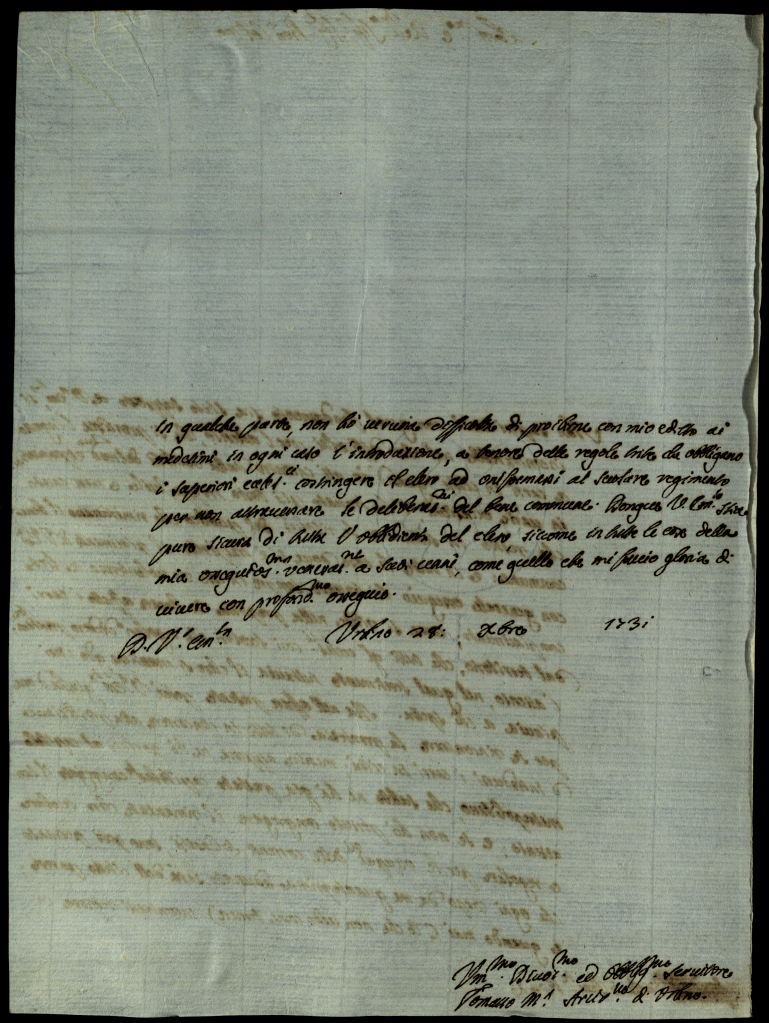 in qualche parte, non hò veruna difficoltà di proibire con mio editto ai
medesimi in ogni caso l'introduzione, a tenore delle regole tutte che obbligano
i superiori eccles.ci costringere il clero ad uniformarsi al secolare regimento
per non attraversare le deliberaz.ni del bene commune. Dunque V. Em.za stia
pure sicura di tutta l'obbidienza del clero, siccome in tutte le cose della
mia ossequios.ma veneraz.ne a suoi cenni, come quello che mi faccio gloria di
vivere con profond.mo ossequio.
D. V.ra Em.za Urbino 28: Xbre 1731
Um.mo Divot.mo ed Obblig.mo Servitore
Tomaso M.a Arciv.vo d' Urbino.